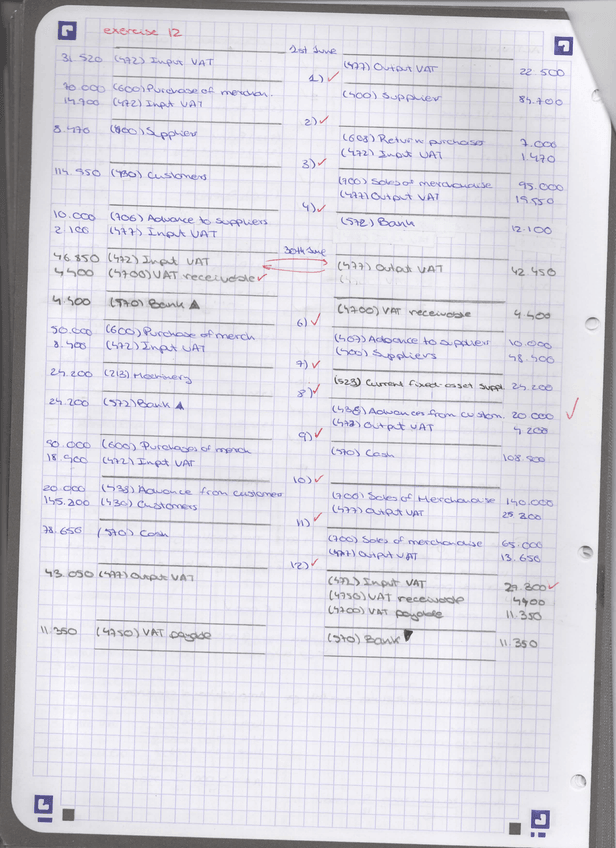 exercise 12
1st June
31.520 (472) Input VAT
(477) Output VAT 22.500
1) ✓
70.000 (600) Purchase of merchan.
14.700 (472) Input VAT
(400) Supplier 84.700
2) ✓
8.470 (400) Supplier
(608) Return purchases 7.000
(472) Input VAT 1470
3) ✓
114.950 (430) Customers
(700) Sales of merchandise 95.000
(477) Output VAT 19.950
4) ✓
10.000 (706) Advance to suppliers
2.100 (477) Input VAT
(572) Bank 12.100
30th June
46.850 (472) Input VAT
4400 (4700) VAT receivable ✓
(477) Output VAT 42 450
4.400 (570) Bank ▲
(4700) VAT receivable 4 400
6) ✓
50.000 (600) Purchase of merch
8.400 (472) Input VAT
(407) Advance to supplier 10.000
(400) Suppliers 48.400
7) ✓
24.200 (213) Machinery
(523) Current fixed-asset suppl 24.200
8) ✓
24.200 (572) Bank ▲
(438) Advances from custom. 20 000 ✓
(477) Output VAT 4 200
9) ✓
90.000 (600) Purchases of merch
18.900 (472) Input VAT
(570) Cash 108.900
10) ✓
20.000 (438) Advance from customer
145.200 (430) Customers
(700) Sales of Merchandise 140.000
(477) Output VAT 25.200
11) ✓
78.650 (570) Cash
(700) Sales of merchandise 65.000
(477) Output VAT 13.650
12) ✓
43.050 (477) Output VAT
(472) Input VAT 27.300 ✓
(4750) VAT receivable 4400
(4700) VAT payable 11.350
11.350 (4750) VAT payable
(570) Bank ▼ 11.350